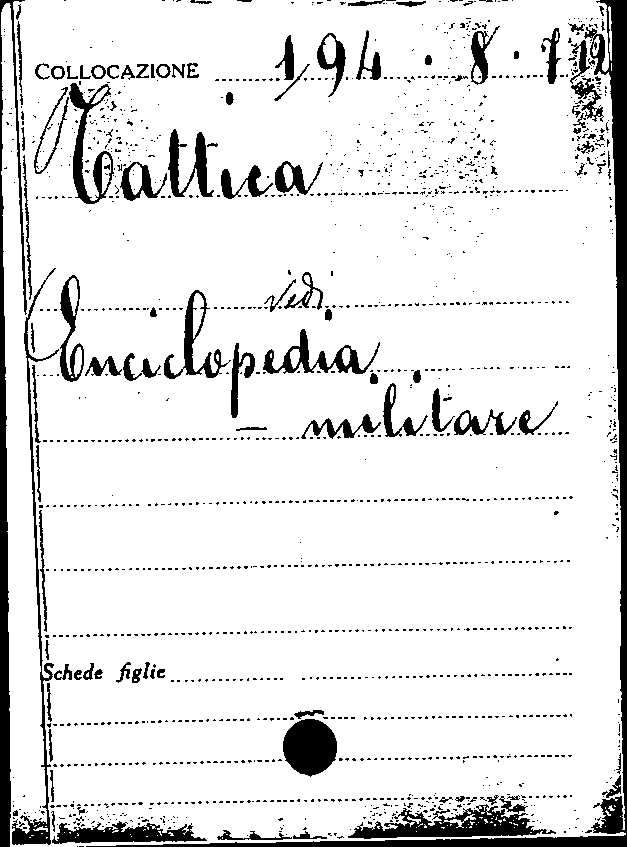 COLLOCAZIONE 194 · 8 · 712
Tattica
vedi
Enciclopedia
- militare
Schede figlie